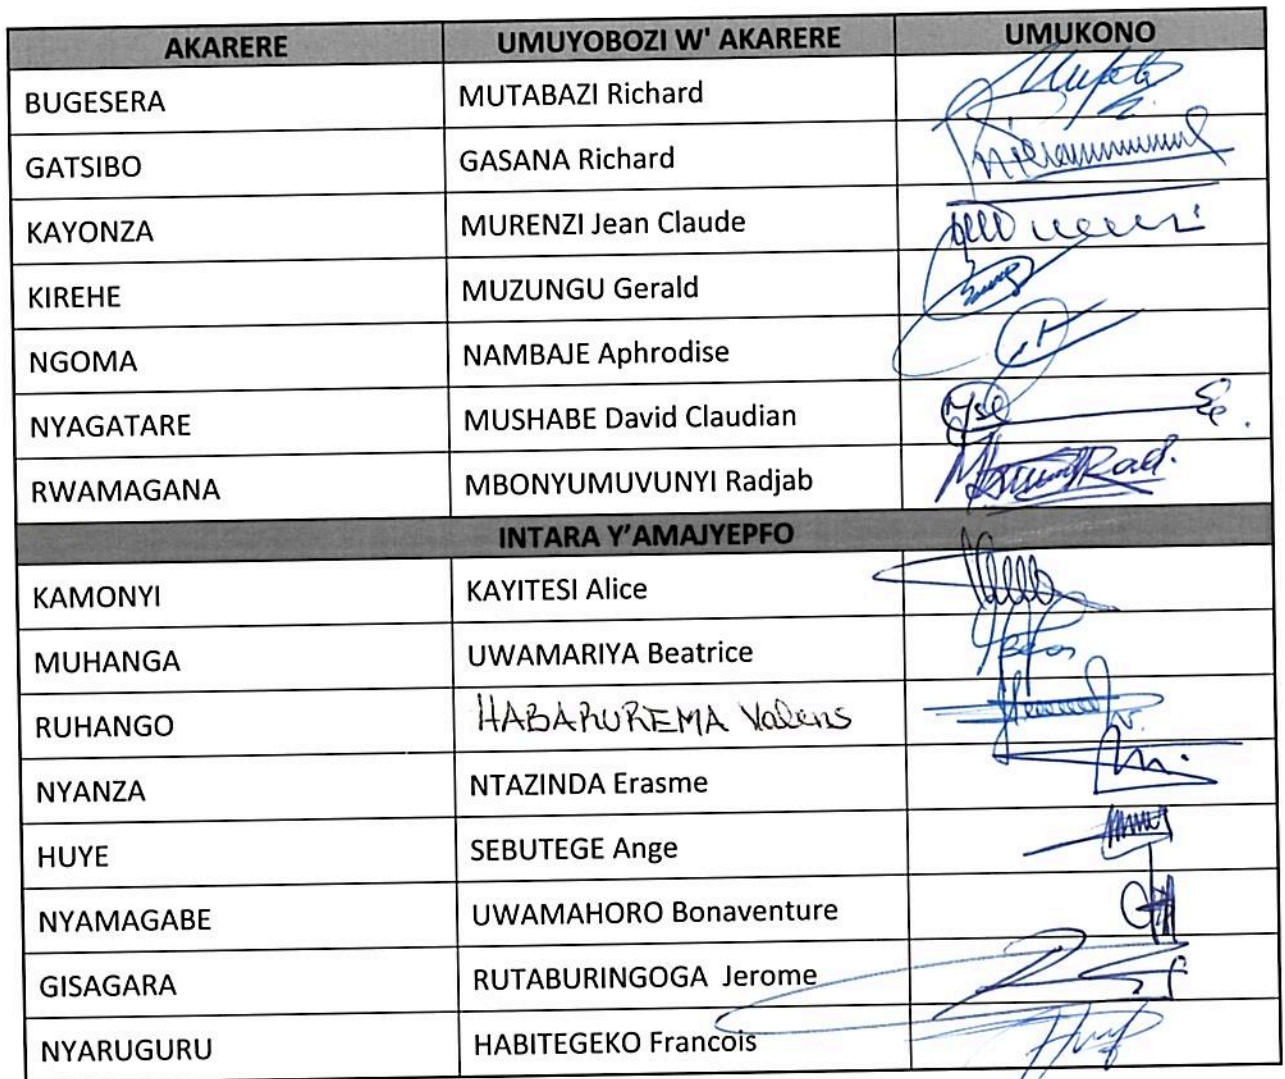 AKARERE UMUYOBOZI W' AKARERE UMUKONO
BUGESERA MUTABAZI Richard
GATSIBO GASANA Richard
KAYONZA MURENZI Jean Claude
KIREHE MUZUNGU Gerald
NGOMA NAMBAJE Aphrodise
NYAGATARE MUSHABE David Claudian
RWAMAGANA MBONYUMUVUNYI Radjab
INTARA Y’AMAJYEPFO
KAMONYI KAYITESI Alice
MUHANGA UWAMARIYA Beatrice
RUHANGO HABARUREMA Valens
NYANZA NTAZINDA Erasme
HUYE SEBUTEGE Ange
NYAMAGABE UWAMAHORO Bonaventure
GISAGARA RUTABURINGOGA Jerome
NYARUGURU HABITEGEKO Francois